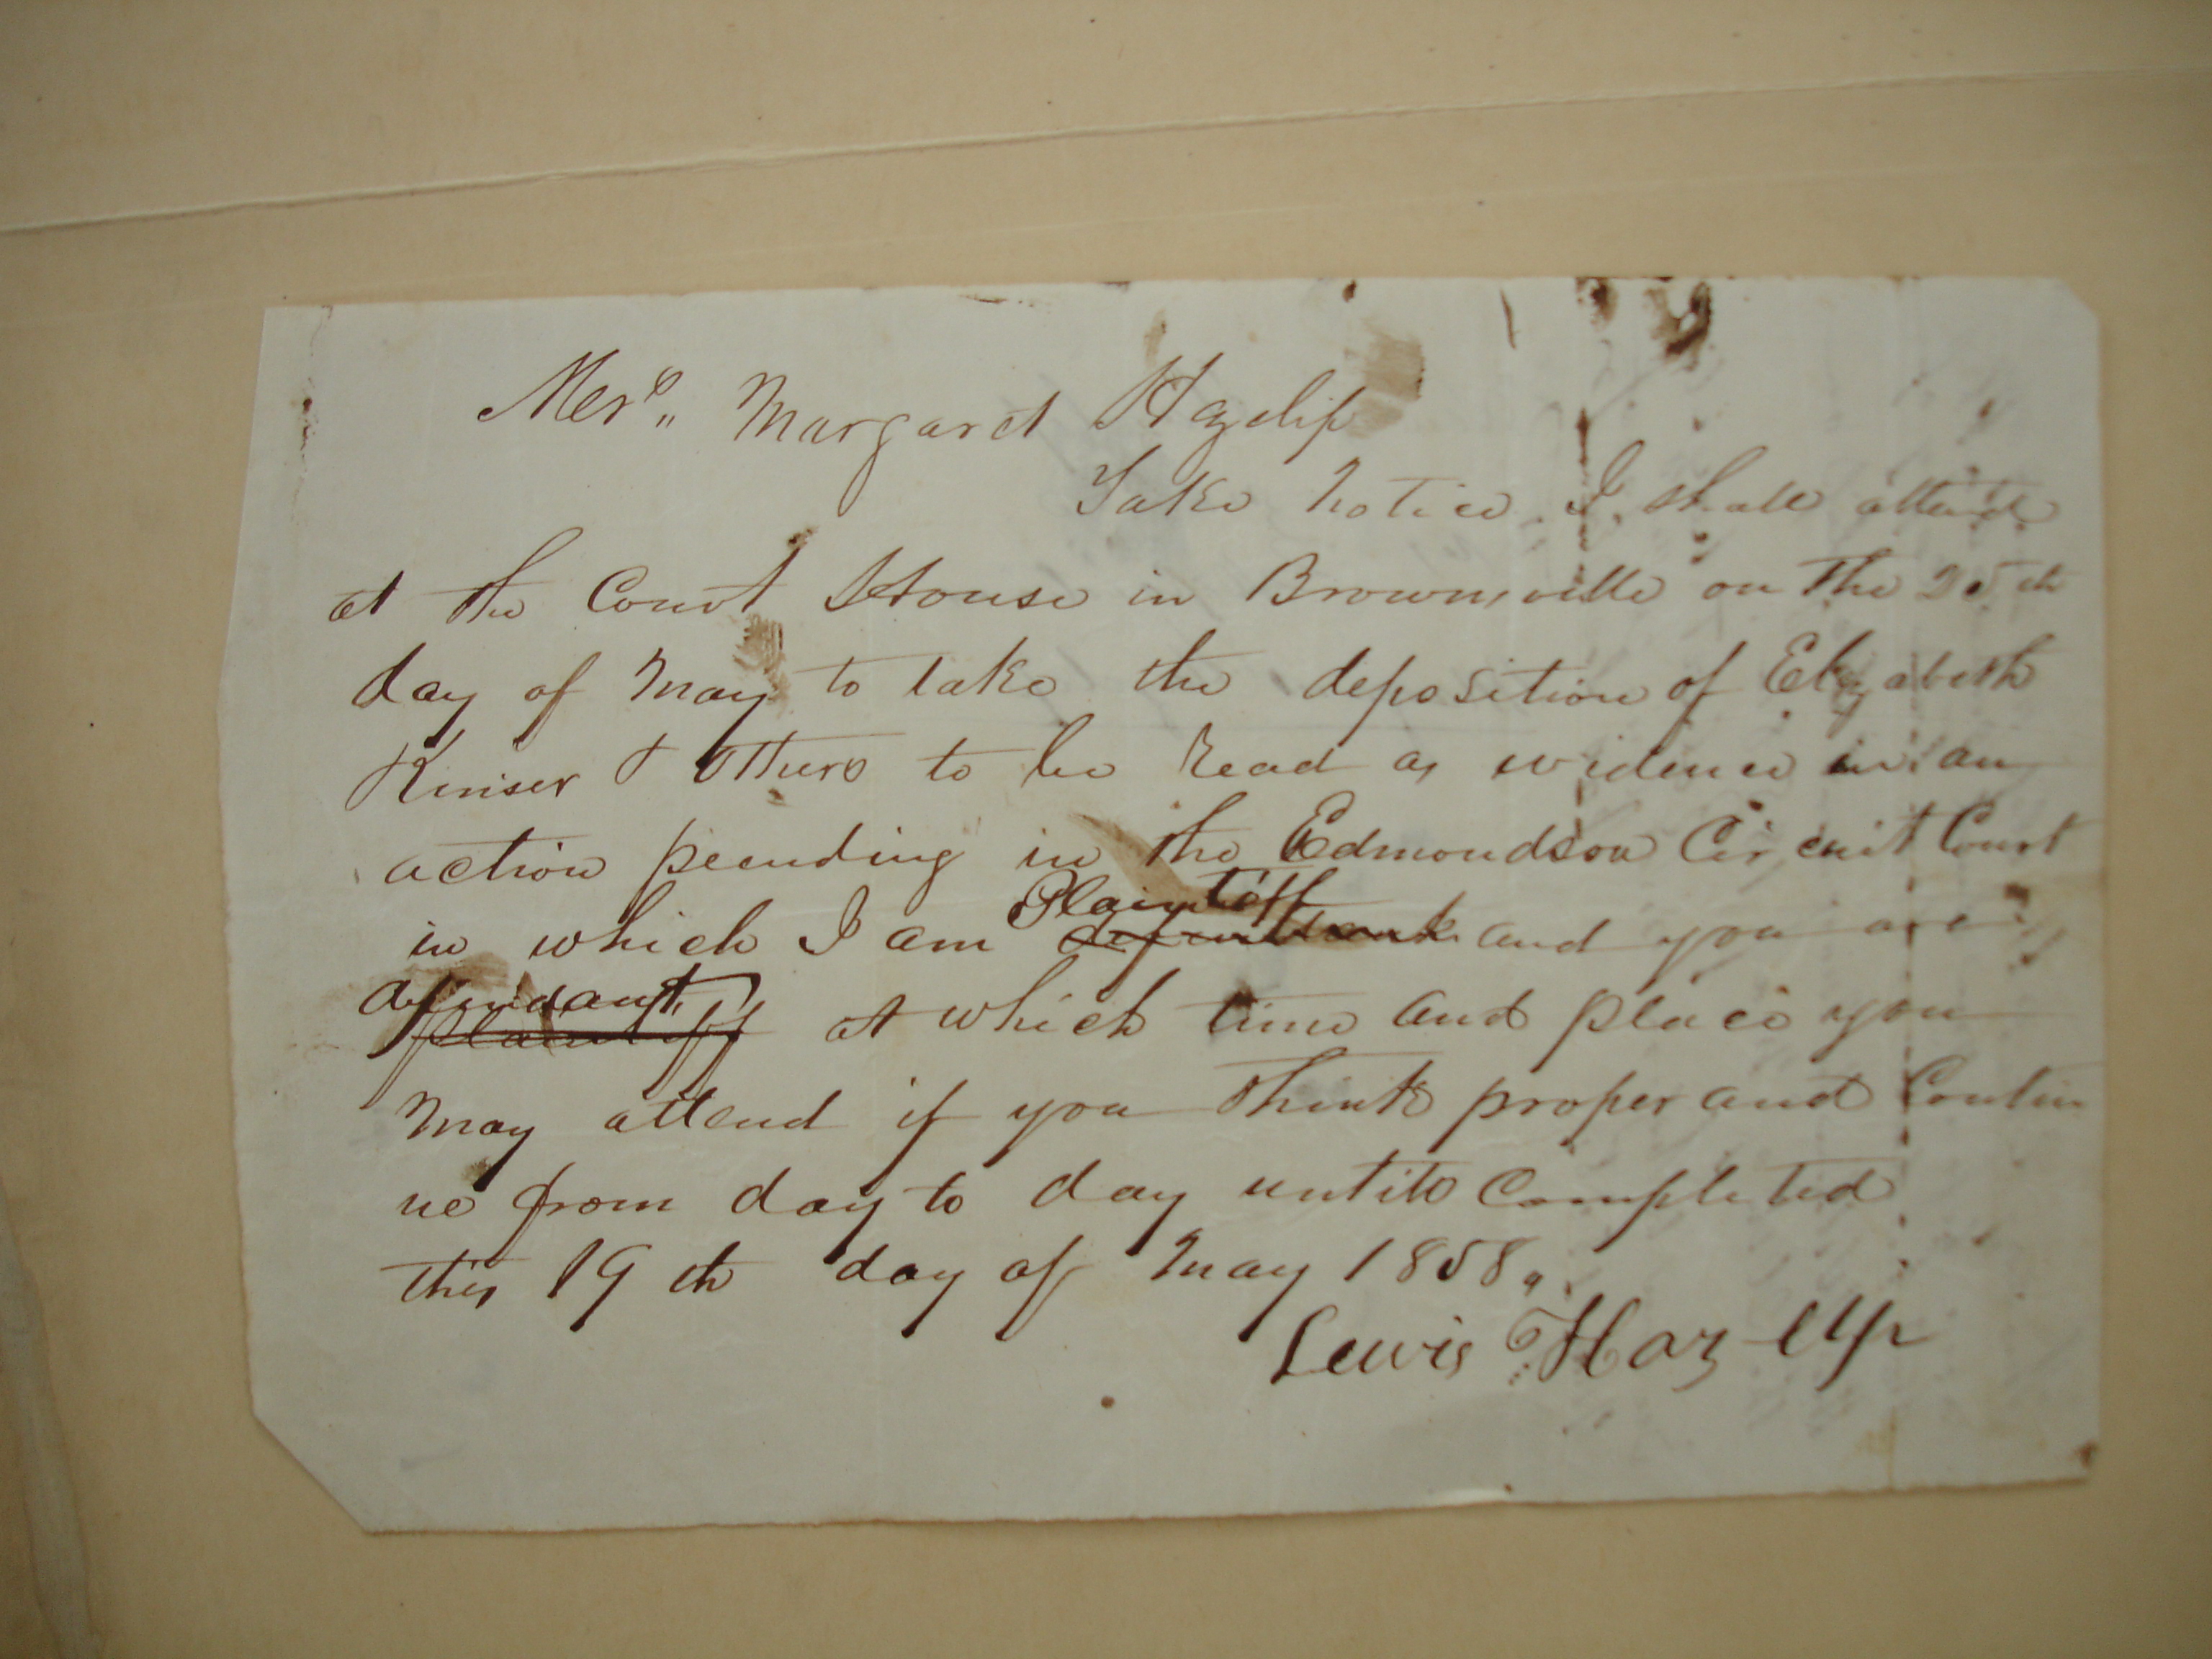 Mers,, Margaret Hazlip
Take notice I shall attend
at the Court House in Brownsville on the 25th
day of May to take the deposition of Elizabeth
Kinser & others to be Read as evidence in an
action peending in the Edmondson Circuit Court
Plaintiff
in which I am defendant and you are
defendant
plaintiff at which time and place you
may attend if you think proper and Contin
ue from day to day untill Completed
this 19th day of May 1858,,
Lewis Hazelip